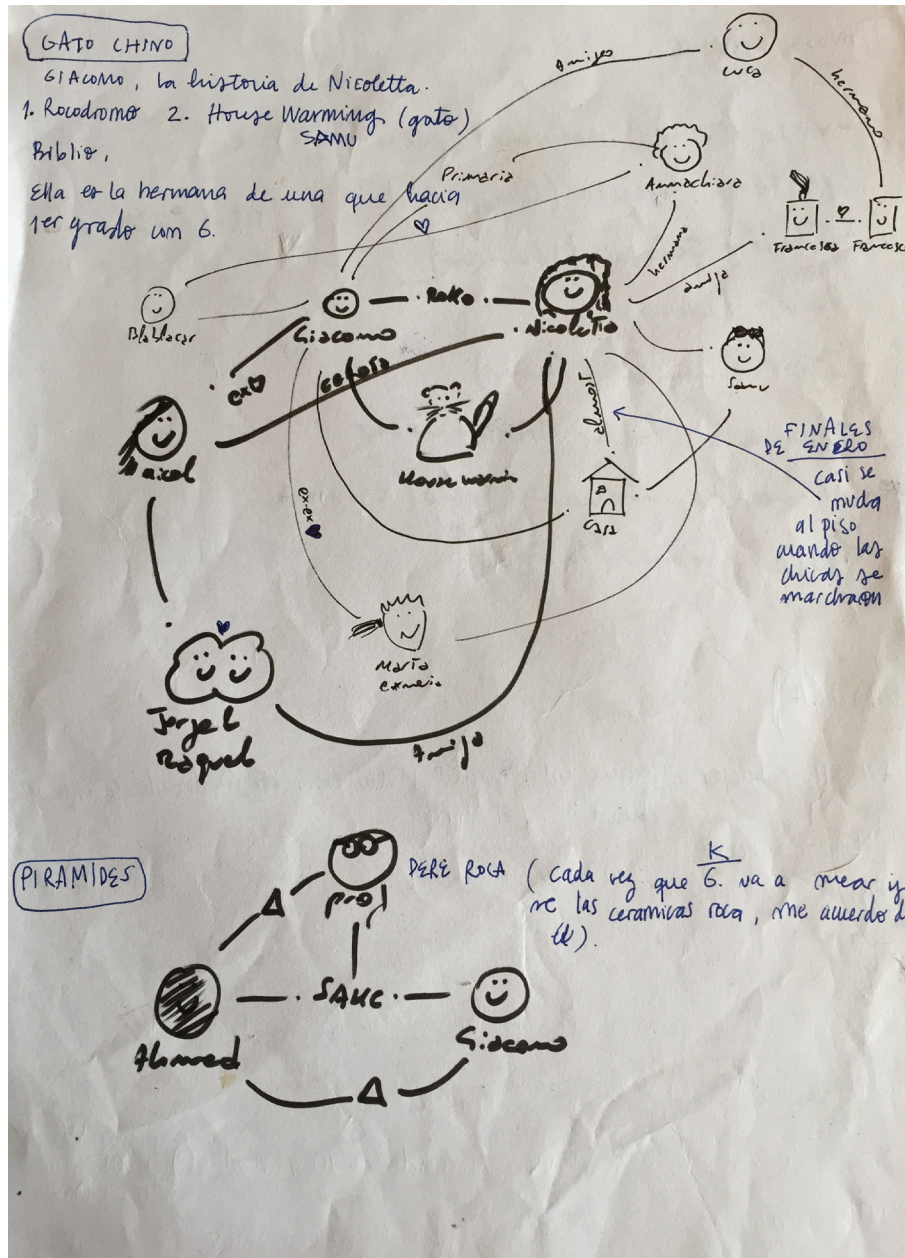 GATO CHINO
GIACOMO, la historia de Nicoletta.
1. Rocodromo 2. House Warming (gato)
SAMU
Biblio,
Ella es la hermana de una que hacia
1er grado con G.
Amigo
Luca
hermano
Primaria
Annachiara
hermana
Francesca
Francesc
amiga
Blablacar
Giacomo
Rollo
Nicoletta
Samu
ex
celosa
almost
House warmin
Casa
FINALES
DE ENERO
casi se
muda
al piso
cuando las
chicas se
marcharon
ex-ex
Maria
Jorge &
Raquel
Amiga
PIRAMIDES
prof
PERE ROCA
(cada vez que G. va a mear y
K
ve las ceramicas roca, me acuerdo d
el).
SAUC
Ahmed
Giacomo